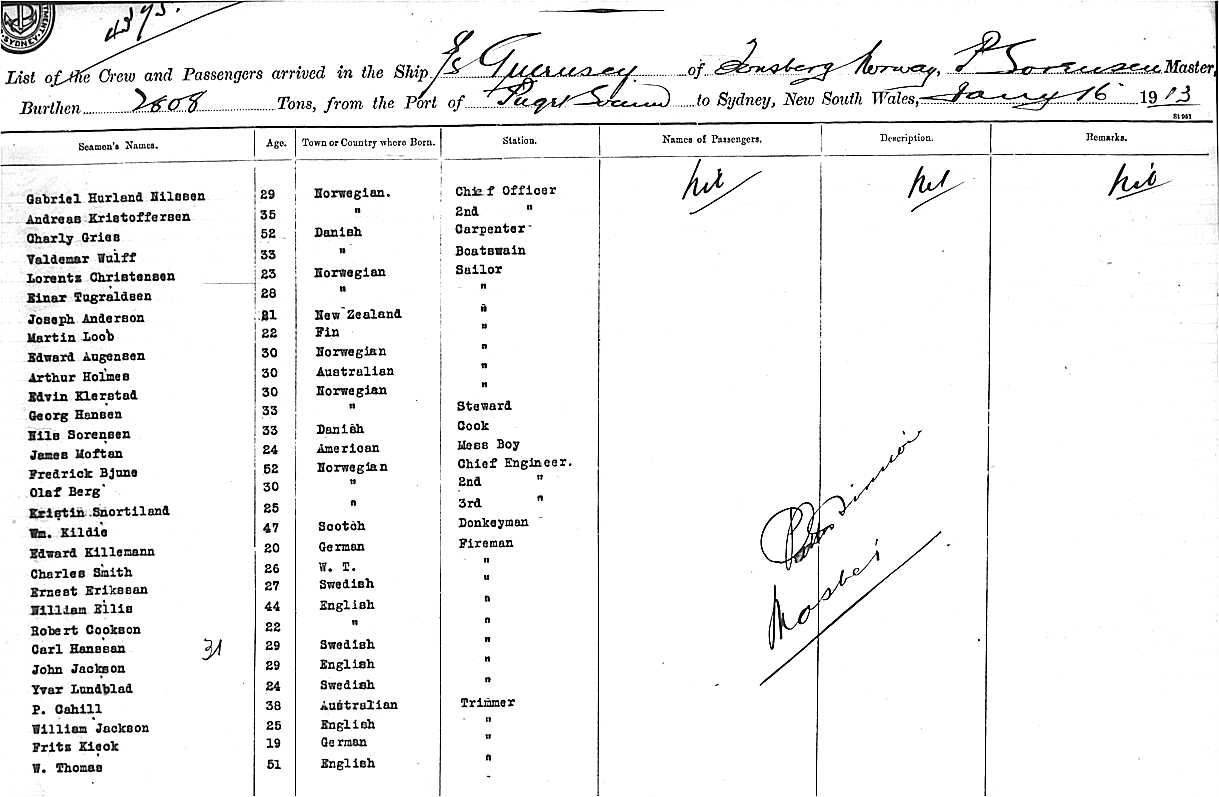 SYDNEY
4395.
List of the Crew and Passengers arrived in the Ship S/S Guernsey of Tonsberg Norway, P Sorensen Master,
Burthen 2808 Tons, from the Port of Puget Sound to Sydney, New South Wales, Jany 16 1913
Seamen's Names. Age. Town or Country where Born. Station. Names of Passengers. Description. Remarks.
Gabriel Hurland Nilssen 29 Norwegian. Chief Officer Nil Nil Nil
Andreas Kristoffersen 35 " 2nd "
Charly Gries 52 Danish Carpenter
Valdemar Wulff 33 " Boatswain
Lorentz Christensen 23 Norwegian Sailor
Einar Tugraldsen 28 " "
Joseph Anderson 21 New Zealand "
Martin Loob 22 Fin "
Edward Augensen 30 Norwegian "
Arthur Holmes 30 Australian "
Edvin Klerstad 30 Norwegian "
Georg Hansen 33 " Steward
Nils Sorensen 33 Danish Cook
James Moftan 24 American Mess Boy
Fredrick Bjune 52 Norwegian Chief Engineer.
Olaf Berg 30 " 2nd "
Kristin Snortiland 25 " 3rd "
Wm. Kildie 47 Scotch Donkeyman
Edward Killemann 20 German Fireman
Charles Smith 26 W. T. "
Ernest Erikssan 27 Swedish "
William Ellis 44 English "
Robert Cookson 22 " "
Carl Hanssan 31 29 Swedish "
John Jackson 29 English "
Yvar Lundblad 24 Swedish "
P. Cahill 38 Australian Trimmer
William Jackson 25 English "
Fritz Kieok 19 German "
W. Thomas 51 English "
Master